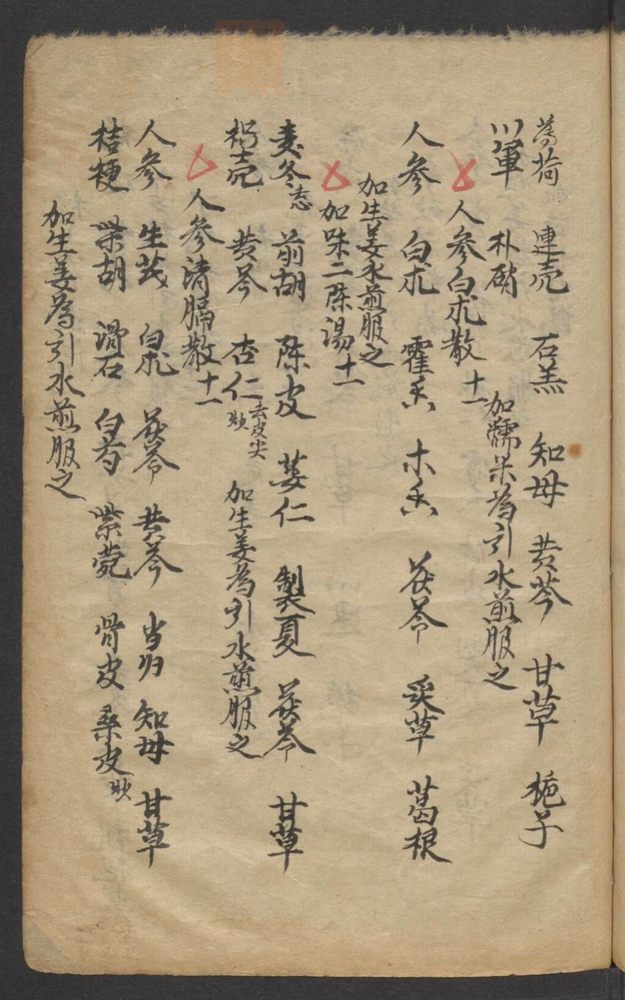 薄荷 連壳 石羔 知母 黄芩 甘草 梔子
川軍 朴硝 加糯米為引水煎服之
人参白朮散 十一
人参 白朮 霍香 木香 茯苓 炙草 葛根
加生姜水煎服之
加味二陈湯 十一
麦冬去心 前胡 陈皮 蒌仁 製夏 茯苓 甘草
枳壳 黄芩 杏仁去皮尖 加生姜為引水煎服之
人参清膈散 十一
人参 生芪 白朮 茯苓 黄芩 当归 知母 甘草
桔梗 柴胡 滑石 白芍 紫菀 骨皮 桑皮
加生姜為引水煎服之